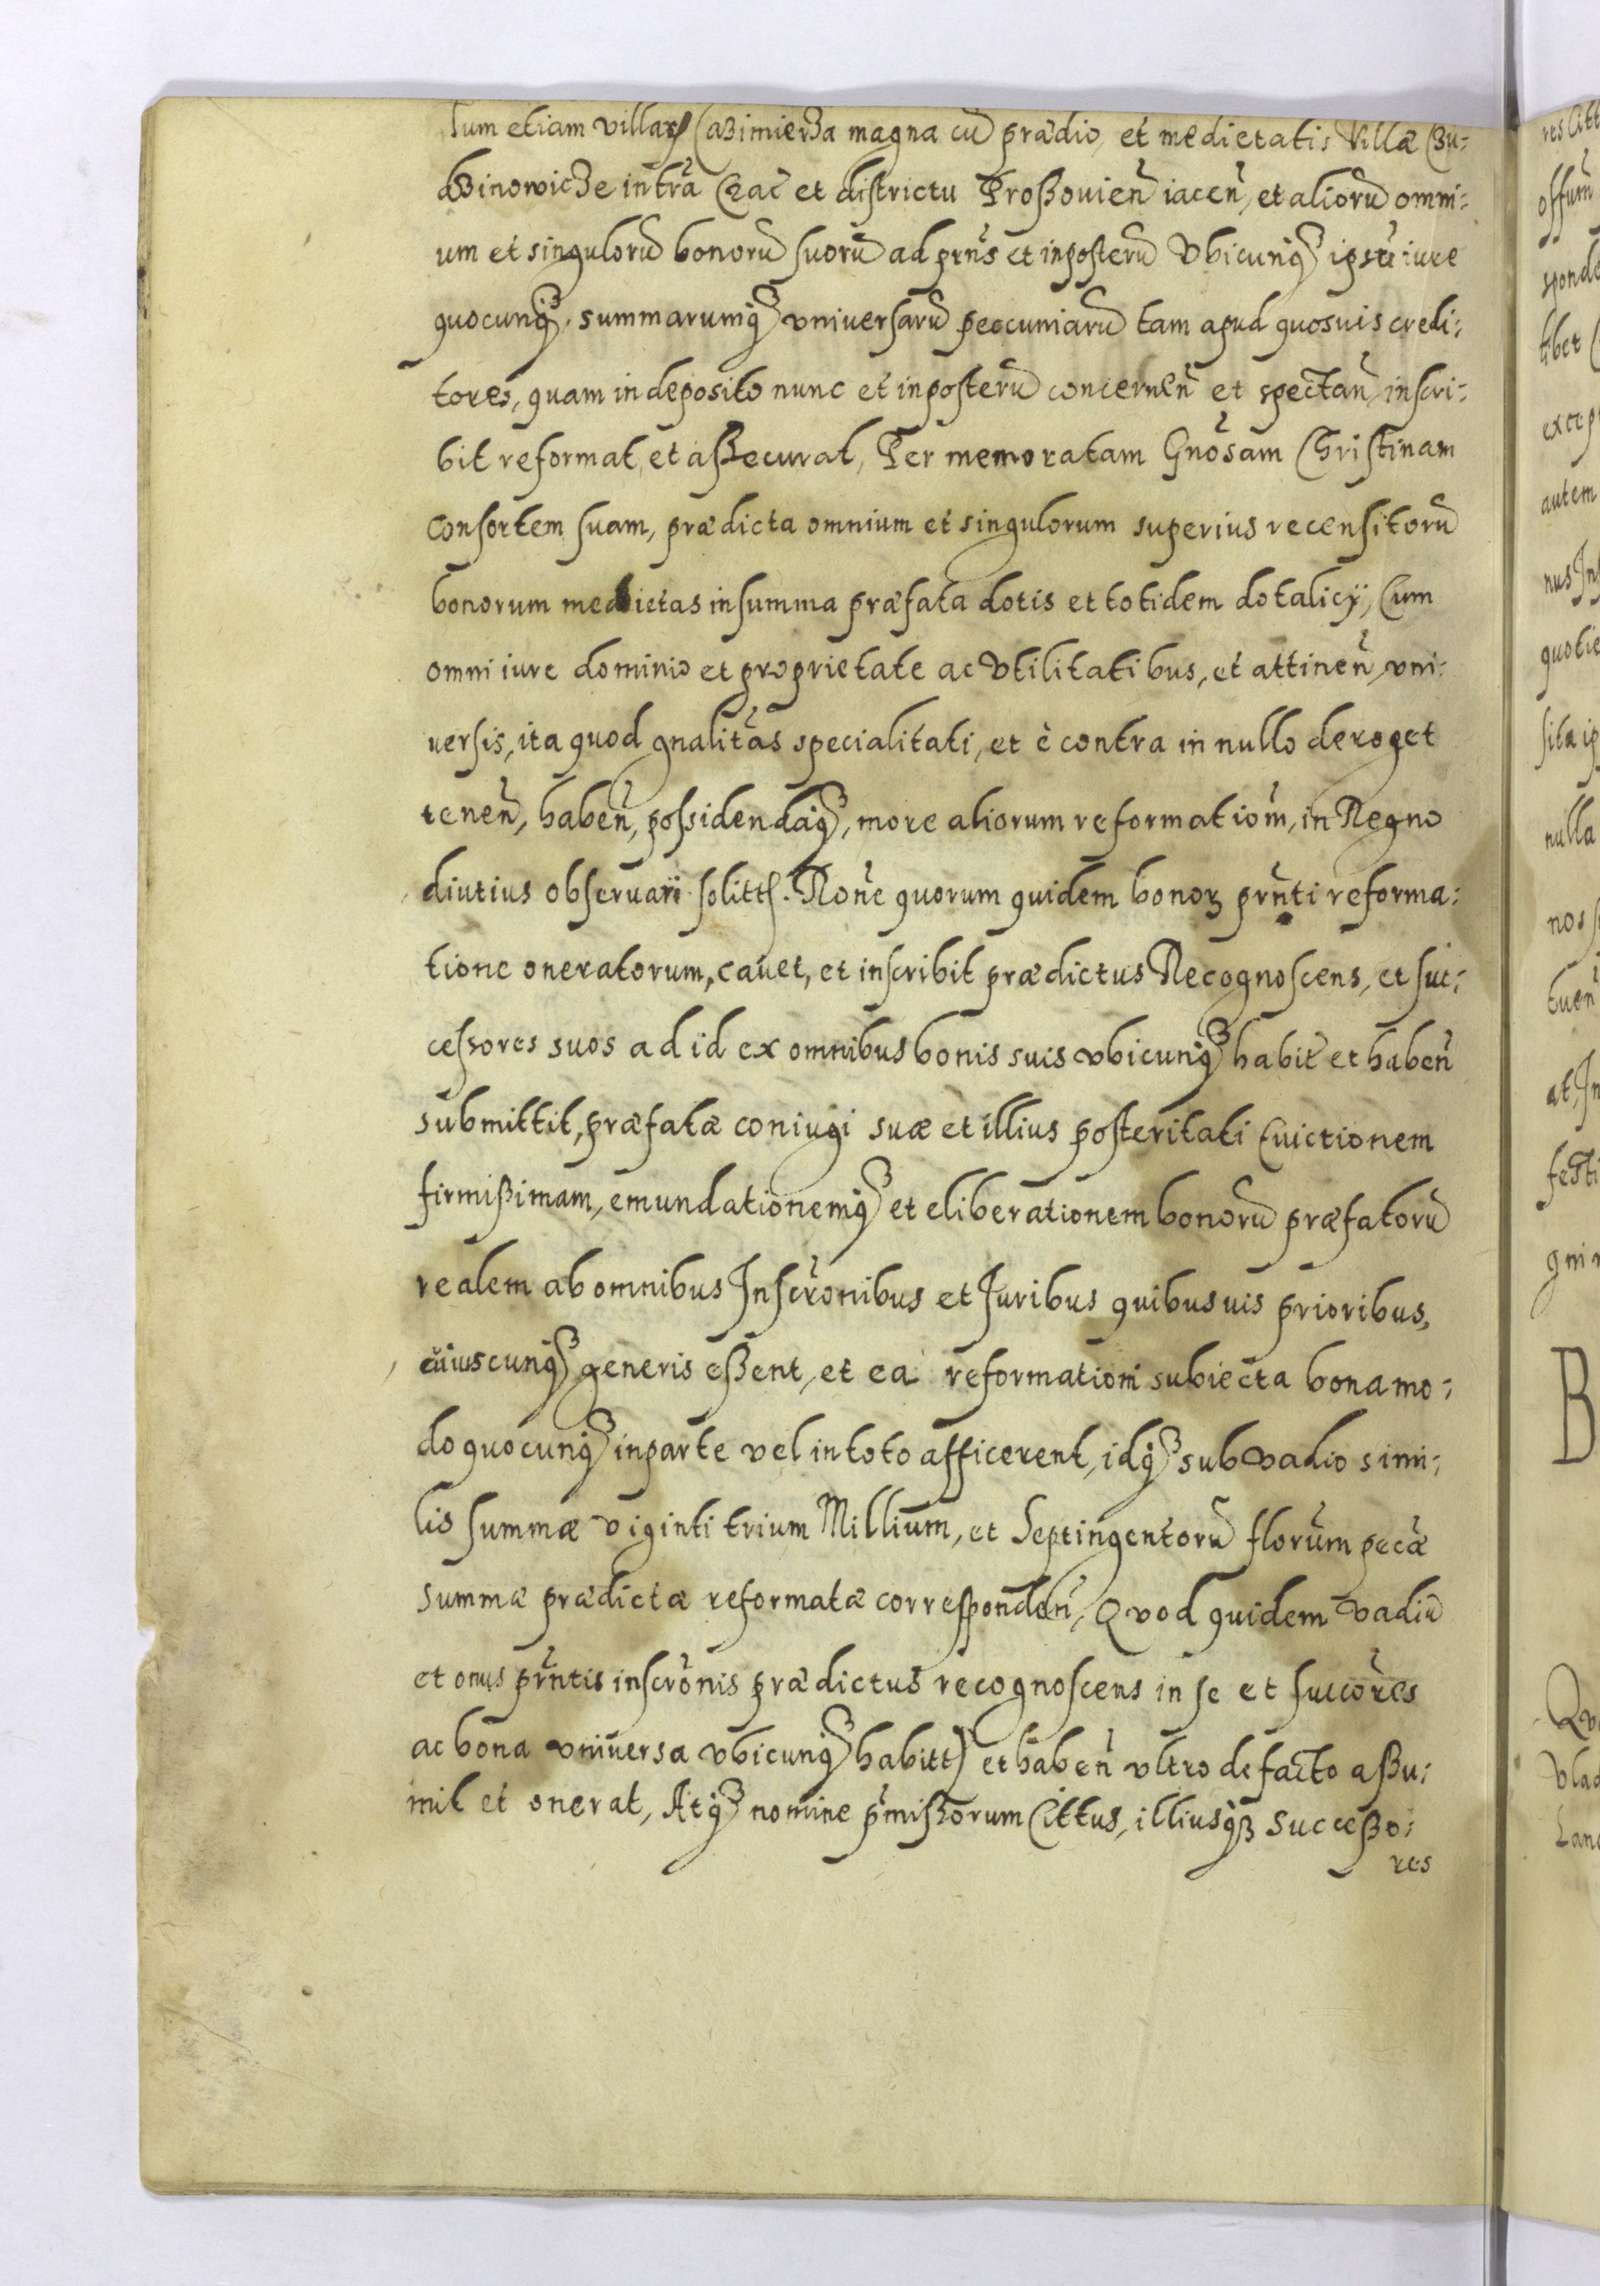 Tum etiam villarꝝ Cazimierza magna cū prædio, et medietatis Villæ Cu:
dzinowicze intra Crac̃ et districtu Proßovien̄ iacen̄, et aliorū omni:
um et singulorū bonorū suorū ad prn̄s et inposterū Vbicunq́ꝫ ipsū iure
quocunq́ꝫ, summarumq́ꝫ vniversarū pecuniarū tam apud quosuis credi:
tores, quam in deposito nunc et inposterū concernen̄ et spectan̄ inscri:
bit reformat, et aßecurat, Per memoratam Gn̄osam Christinam
Consortem suam, prædicta omnium et singulorum superius recensitorū
bonorum medietas in summa præfata dotis et totidem dotalicÿ, Cum
omni iure dominio et proprietate ac Vtilitatibus, et attinen̄ vni:
versis, ita quod gn̄alitas specialitati, et è contra in nullo deroget
tenen̄, haben̄, possidendaq́ꝫ, more aliorum reformatiom̄, in Regno
diutius observari solitt. Rōne quorum quidem bonoꝝ prn̄ti reforma:
tione oneratorum, cauet, et inscribit prædictus Recognoscens, et suc:
cessores suos ad id ex omnibus bonis suis vbicunq́ꝫ habit̄ et haben̄
submittit, præfatæ coniugi suæ et illius posteritati Euictionem
firmißimam, emundationemq́ꝫ et eliberationem bonorū præfatorū
realem ab omnibus Inscrōnibus et Juribus quibusuis prioribus,
cuiuscunq́ꝫ generis eßent, et ea reformationi subiecta bona mo:
do quocunq́ꝫ in parte vel in toto afficerent, idq́ꝫ sub vadio simi:
lis summæ viginti trium Millium, et Septingentorū florūm pecæ̃
summæ prædictæ reformatæ corresponden̄, Quod quidem vadiū
et onus prn̄tis inscrōnis prædictus recognoscens in se et succōres
ac bona vniversa vbicunq́ꝫ habitt et haben̄ vltro de facto aßu:
mit et onerat, Atq́ꝫ nomine p̄mißorum Cittus, illiusq́ꝫ Succeßo:
res